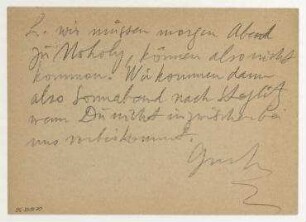 L. wir müssen morgen Abend
zu Moholy, können also nicht
kommen. Wir kommen dann
also Sonnabend nach Steglitz
wenn Du nicht inzwischen bei
uns vorbeikommst.